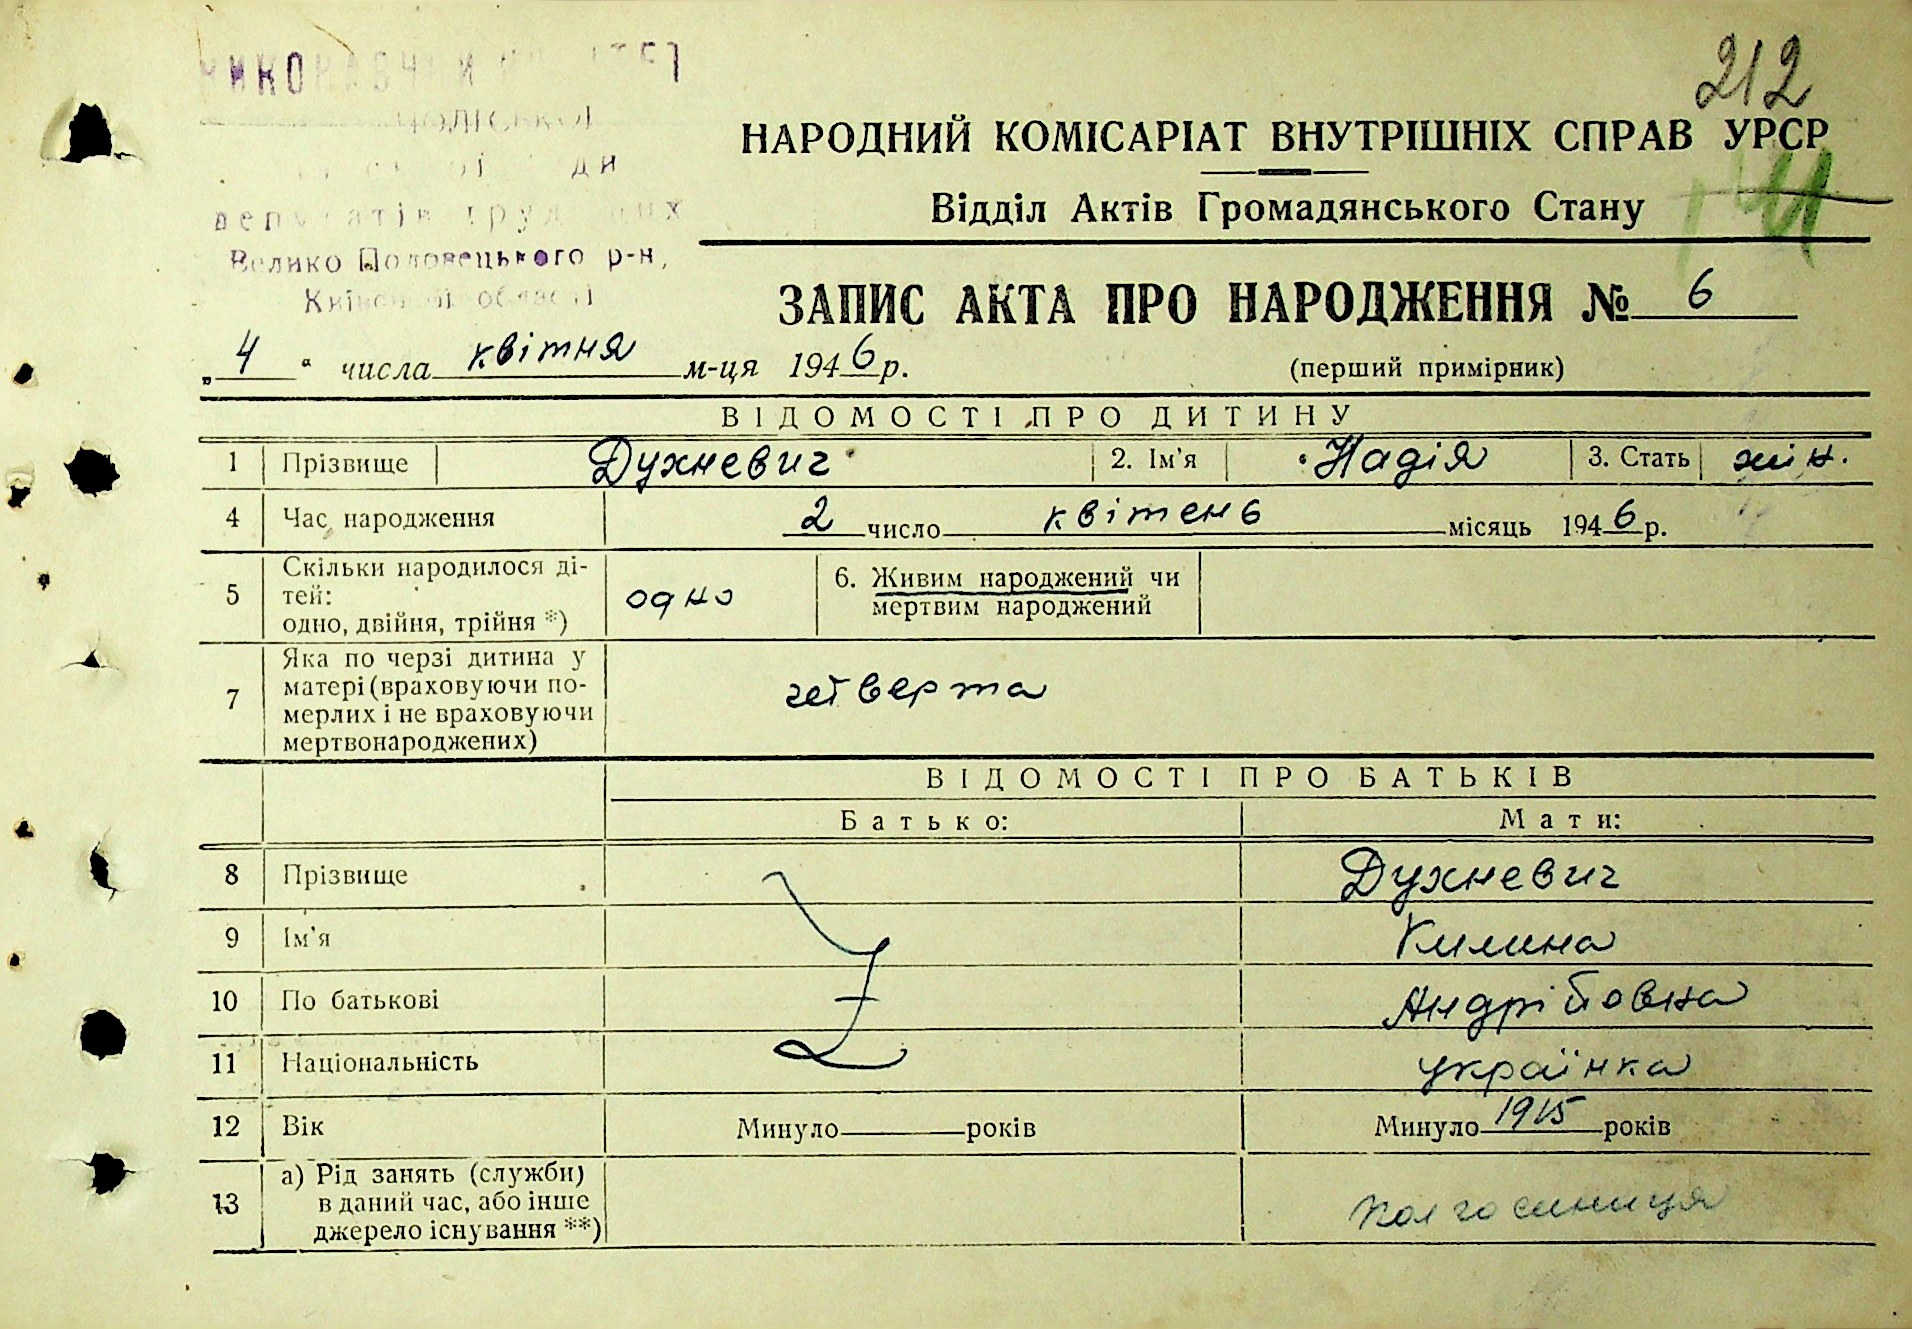 212
НАРОДНИЙ КОМІСАРІАТ ВНУТРІШНІХ СПРАВ УРСР
Відділ Актів Громадянського Стану
депутатів трудящих
Велико Половецького р-н,
Київської області
ЗАПИС АКТА ПРО НАРОДЖЕННЯ № 6
„4“ числа квітня м-ця 1946 р.
(перший примірник)
ВІДОМОСТІ ПРО ДИТИНУ
1 Прізвище Духневич 2. Ім'я Надія 3. Стать жін.
4 Час народження 2 число квітень місяць 1946 р.
5 Скільки народилося ді-
тей:
одно, двійня, трійня *) одно
6. Живим народжений чи
мертвим народжений
7 Яка по черзі дитина у
матері (враховуючи по-
мерлих і не враховуючи
мертвонароджених) четверта
ВІДОМОСТІ ПРО БАТЬКІВ
Батько: Мати:
8 Прізвище Духневич
9 Ім'я Килина
10 По батькові Андріївна
11 Національність українка
12 Вік Минуло років Минуло 1915 років
13 а) Рід занять (служби)
в даний час, або інше
джерело існування **) колгоспниця